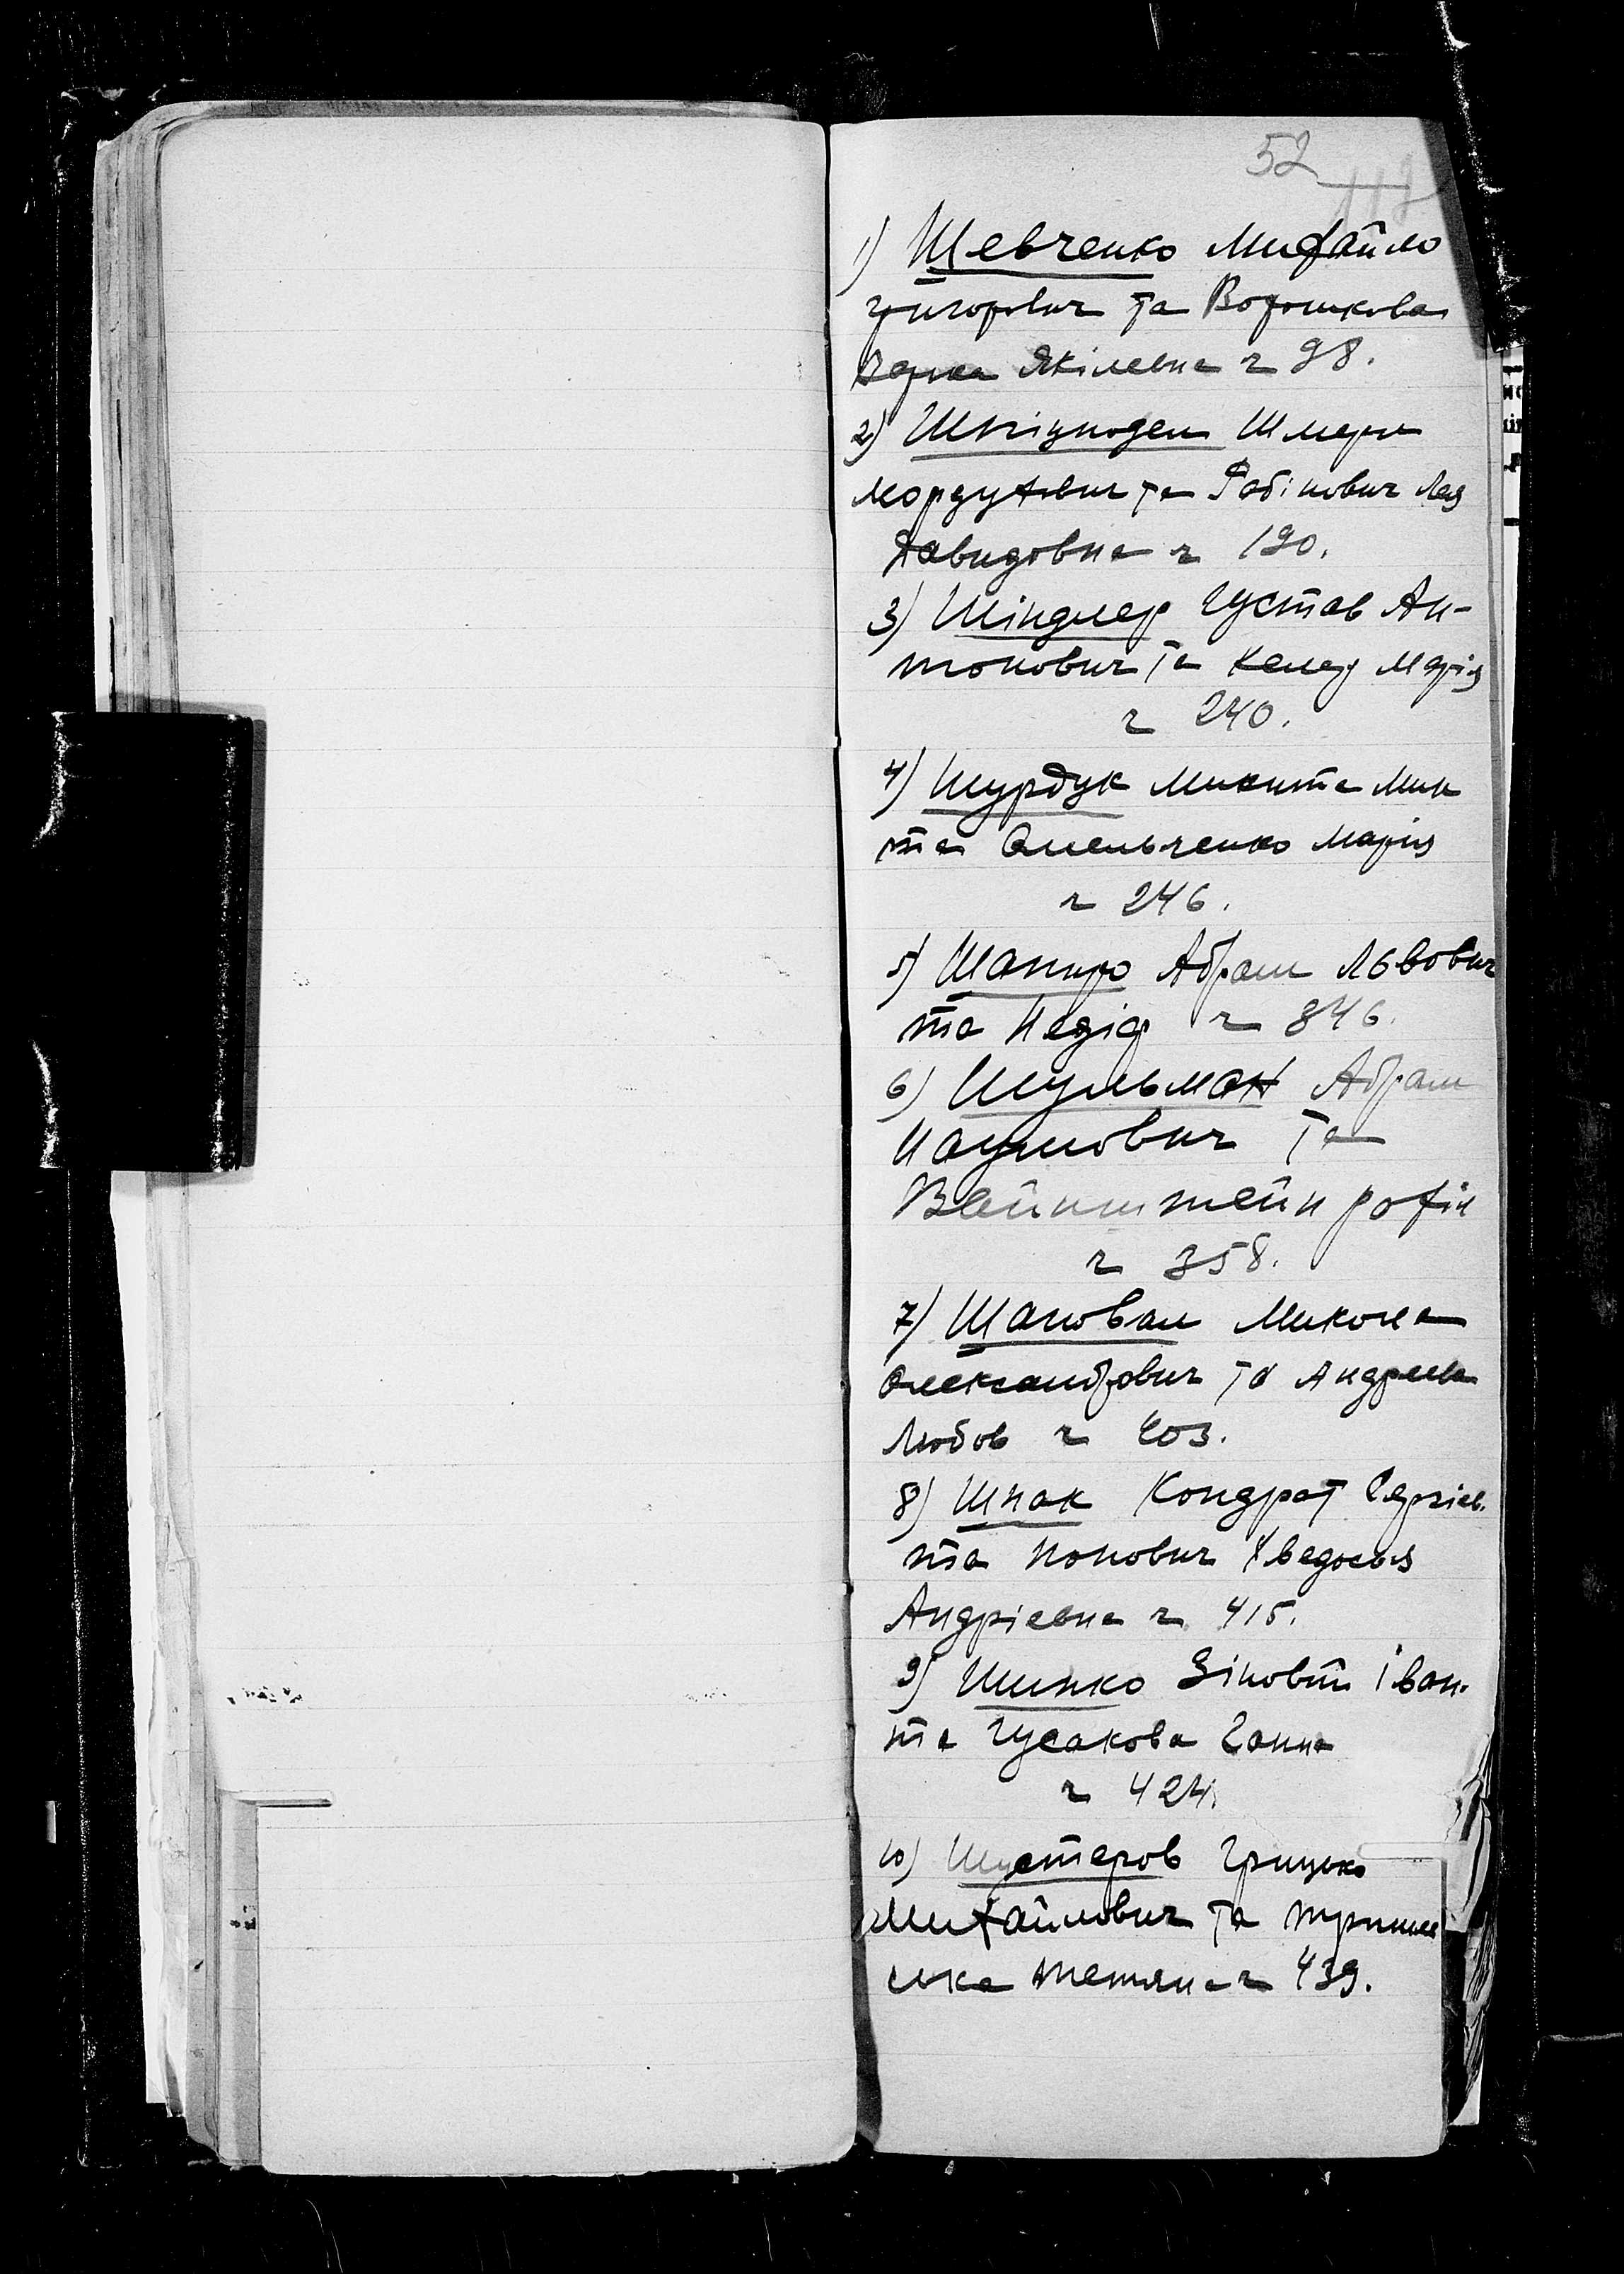 52
1) Шевченко Михайло
Григорович та Ворошкова
Якілевна ч 98.
2) Шпізноден Шмери
Мордухович та Рабінович Лея
Давидовна ч 190.
3) Шіндлер Густав Ан-
тонович та Марія
ч 240.
4) Шурдук Микита Мик
та Омельченко Марія
ч 246.
5) Шапиро Абрам Львович
та ч 346.
6) Шульман Абрам
Наумович та
Вейнштейн Рохіл
ч 358.
7) Шаповал Микола
Олександрович та Андреева
Любов ч 403.
8) Шпак Кондрат Сергіев.
та Попович Хведосья
Андріевна ч 415.
9) Шинко Зіновій Іван.
та Гусакова Ганна
ч 424.
10) Шустеров Грицько
Михайлович та
ська Тетяна ч 439.